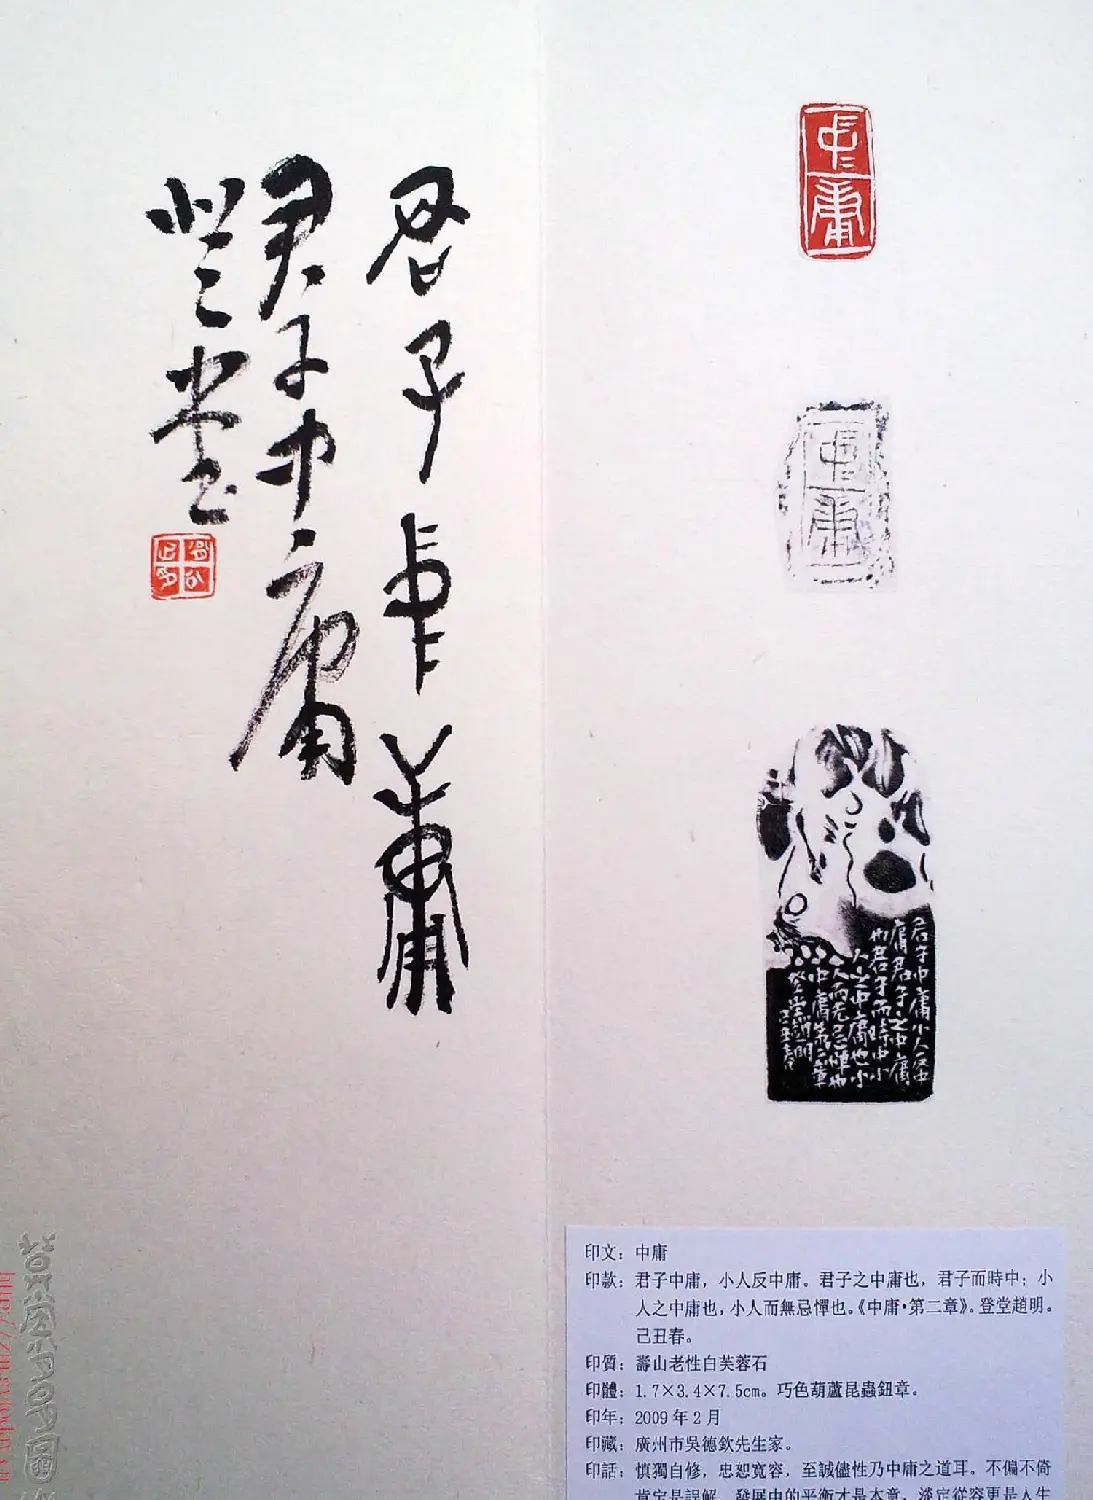 君子中庸
君子中庸
登堂
中庸
中庸
君子中庸小人反中
庸君子之中庸
也君子而時中小
人之中庸也小
人而無忌憚也
中庸第二章
登堂趙明
己丑春
印文：中庸
印款：君子中庸，小人反中庸。君子之中庸也，君子而時中；小
人之中庸也，小人而無忌憚也。《中庸·第二章》。登堂趙明。
己丑春。
印質：壽山老性白芙蓉石
印體：1.7×3.4×7.5cm。巧色葫蘆昆蟲鈕章。
印年：2009年2月
印藏：廣州市吳德欽先生家。
印話：慎獨自修，忠恕寬容，至誠儘性乃中庸之道耳。不偏不倚
肯定是誤解，發展中的平衡才是本意，淡定從容更是人生